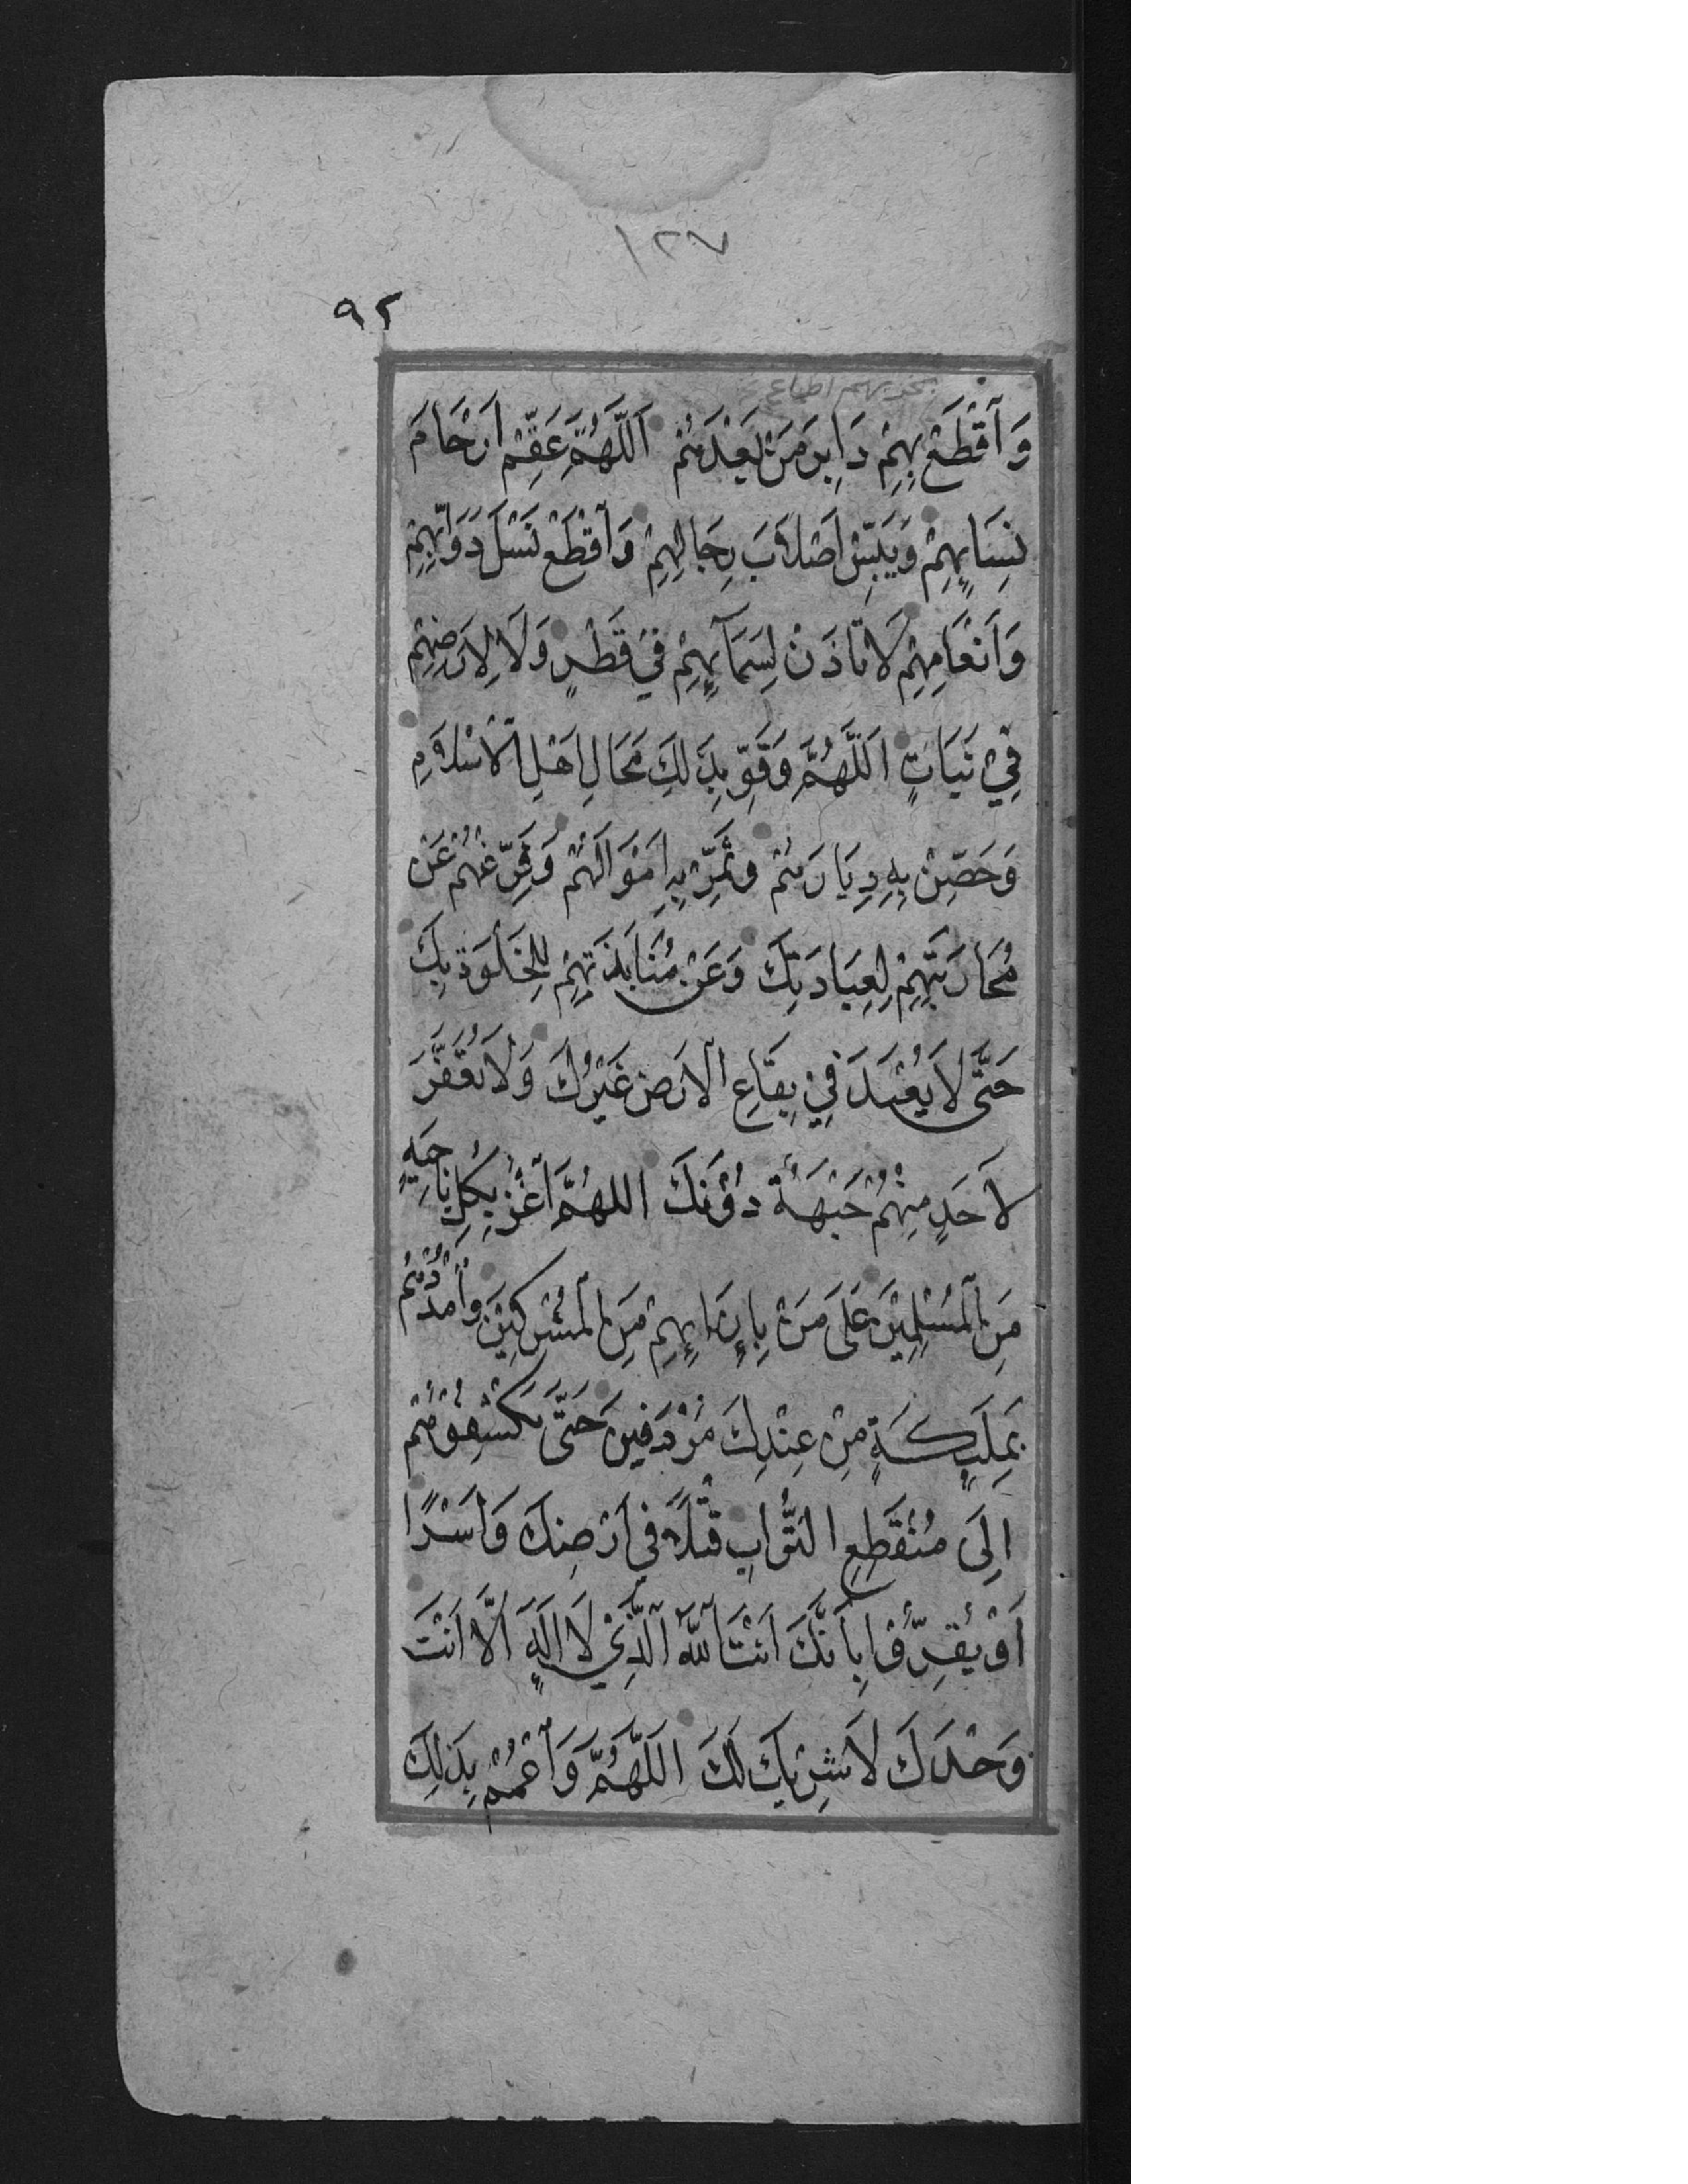 ١٢٧
٩٢
بخزيهم اطماع
وَاَقْطَعْ بِهِمْ دَابِرَ مَنْ بَعْدَهُمْ اَللّٰهُمَّ عَقِّمْ اَرْحَامَ
نِسَاۤئِهِمْ وَيَبِّسْ اَصْلَابَ رِجَالِهِمْ وَاَقْطَعْ نَسْلَ دَوَابِّهِمْ
وَاَنْعَامِهِمْ لَا تَاذَنْ لِسَمَاۤئِهِمْ فِيْ قَطْرٍ وَلَا لِاَرْضِهِمْ
فِيْ نَبَاتٍ اَللّٰهُمَّ وَقَوِّ بِذٰلِكَ مَحَالِ اَهْلِ الْاِسْلَامِ
وَحَصِّنْ بِهِ دِيَارَهُمْ وَثَمِّرْ بِهِ اَمْوَالَهُمْ وَفَرِّغْهُمْ عَنْ
مُحَارَبَتِهِمْ لِعِبَادَتِكَ وَعَنْ مُنَابَذَتِهِمْ لِلْخَلْوَةِ بِكَ
حَتَّى لَا يُعْبَدَ فِيْ بِقَاعِ الْاَرْضِ غَيْرُكَ وَلَا تُعَفَّرَ
لِاَحَدٍ مِنْهُمْ جَبْهَةٌ دُوْنَكَ اللهُمَّ اَغْزُ بِكُلِّ نَاحِيَةٍ
مِنَ الْمُسْلِمِيْنَ عَلَى مَنْ بِاِزَاۤئِهِمْ مِنَ الْمُشْرِكِيْنَ وَاَمْدُدْهُمْ
بِمَلٰۤئِكَةٍ مِنْ عِنْدِكَ مُرْدِفِيْنَ حَتَّى يَكْشِفُوْهُمْ
اِلَى مُنْقَطَعِ التُّرَابِ قَتْلًا فِي اَرْضِكَ وَاَسْرًا
اَوْ يُقِرُّوْا بِاَنَّكَ اَنْتَ اللهُ الَّذِيْ لَا اِلٰهَ اِلَّا اَنْتَ
وَحْدَكَ لَا شَرِيْكَ لَكَ اَللّٰهُمَّ وَاَعْمُمْ بِذٰلِكَ